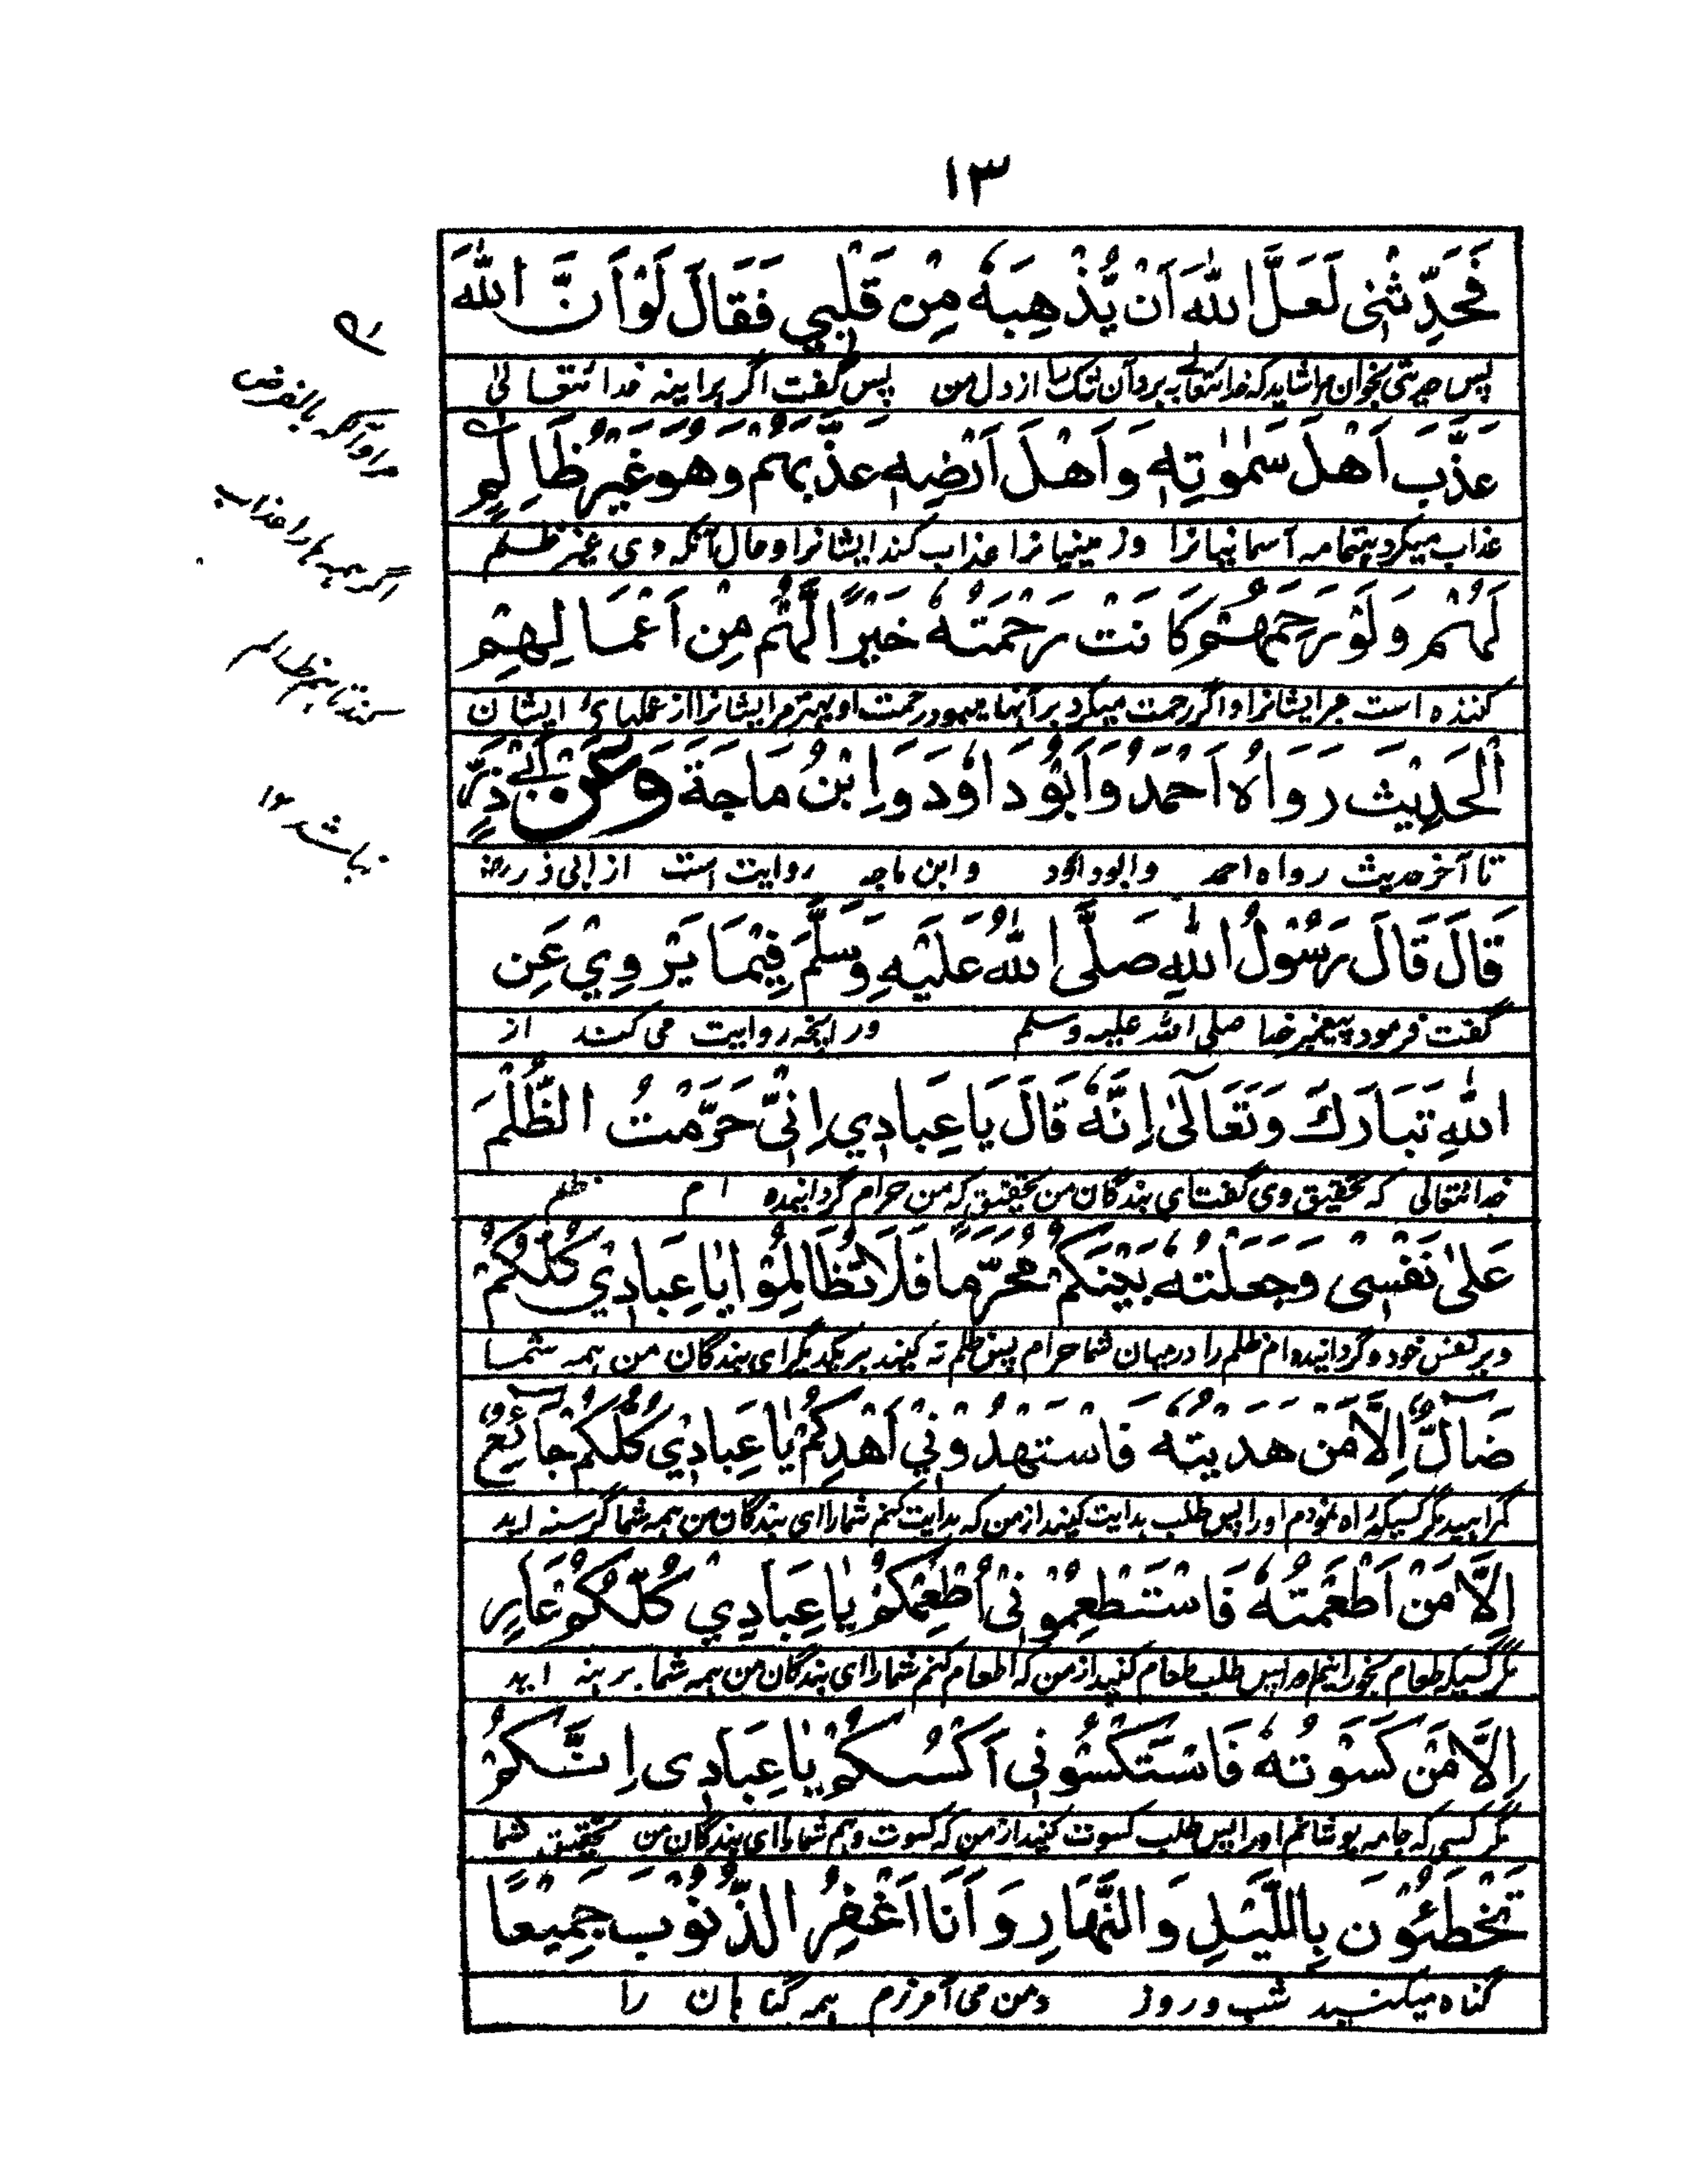 ۱۳
فَحَدِّثْنِی لَعَلَّ اللّٰهَ اَنْ یُّذْهِبَهٗ مِنْ قَلْبِي فَقَالَ لَوْ اَنَّ اللّٰهَ
پس حدیثی بخوان مرا شاید که خدایتعالے به برد آن شک را از دل من پس گفت اگر هراینه خدایتعالی
عَذَّبَ اَهْلَ سَمٰوٰتِهٖ وَ اَهْلَ اَرْضِهٖ عَذَّبَهُمْ وَهُوَ غَیْرُ ظَالِمٍ
عذاب میکرد همه آسمانیانرا و زمینیانرا عذاب کند ایشانرا و حال آنکه وی غیر ظلم
لَهُمْ وَ لَوْ رَحِمَهُمْ کَانَتْ رَحْمَتُهٗ خَیْرًا لَّهُمْ مِنْ اَعْمَالِهِمْ
کننده است مر ایشانرا و اگر رحمت میکرد بر آنها میبود رحمت او بهتر مر ایشانرا از عملهای ایشان
اَلْحَدِیْثَ رَوَاهُ اَحْمَدُ وَ اَبُوْ دَاوٗدَ وَ اِبْنُ مَاجَةَ وَعَنْ اَبِيْ ذَرٍّ
تا آخر حدیث رواه احمد و ابوداؤد و ابن ماجه روایت است از ابی ذر رض
قَالَ قَالَ رَسُوْلُ اللّٰهِ صَلَّی اللّٰهُ عَلَیْهِ وَسَلَّمَ فِیْمَا یَرْوِيْ عَنِ
گفت فرمود پیغمبر خدا صلی الله علیه وسلم در انچه روایت می کند از
اللّٰهِ تَبَارَكَ وَ تَعَالٰی اِنَّهٗ قَالَ یَا عِبَادِي اِنِّیْ حَرَّمْتُ الظُّلْمَ
خدایتعالی که تحقیق وی گفت ای بندگان من تحقیق که من حرام گردانیده ام ظلم
عَلٰی نَفْسِیْ وَ جَعَلْتُهٗ بَیْنَکُمْ مُحَرَّمًا فَلَا تُظَالِمُوْا یَا عِبَادِيْ کُلُّکُمْ
و بر نفس خود و گردانیده ام ظلم را درمیان شما حرام پس ظلم نه کنید بر یکدیگر ای بندگان من همه شما
ضَالٌّ اِلَّا مَنْ هَدَیْتُهٗ فَاسْتَهْدُوْنِيْ اَهْدِکُمْ یَا عِبَادِيْ کُلُّکُمْ جَائِعٌ
گمراهید مگر کسیکه راه نمودم اورا پس طلب هدایت کنید از من که هدایت کنم شمارا ای بندگان من همه شما گرسنه اید
اِلَّا مَنْ اَطْعَمْتُهٗ فَاسْتَطْعِمُوْنِیْ اُطْعِمْکُمْ یَا عِبَادِيْ کُلُّکُمْ عَارٍ
مگر کسیکه طعام بخورانیم اورا پس طلب طعام کنید از من که اطعام کنم شمارا ای بندگان من همه شما برهنه اید
اِلَّا مَنْ کَسَوْتُهٗ فَاسْتَکْسُوْنِي اَکْسُکُمْ یَا عِبَادِی اِنَّکُمْ
مگر کسی که جامه پوشانم اورا پس طلب کسوت کنید از من که کسوت دهم شمارا ای بندگان من تحقیق شما
تُخْطَئُوْنَ بِاللَّیْلِ وَ النَّهَارِ وَ اَنَا اَغْفِرُ الذُّنُوْبَ جَمِیْعًا
گناه میکنید شب و روز و من می آمرزم همه گناهان را
مراد آنکه بالفرض
اگر همه ها را عذاب
کند تا هم ظالم
نباشد ۱۲